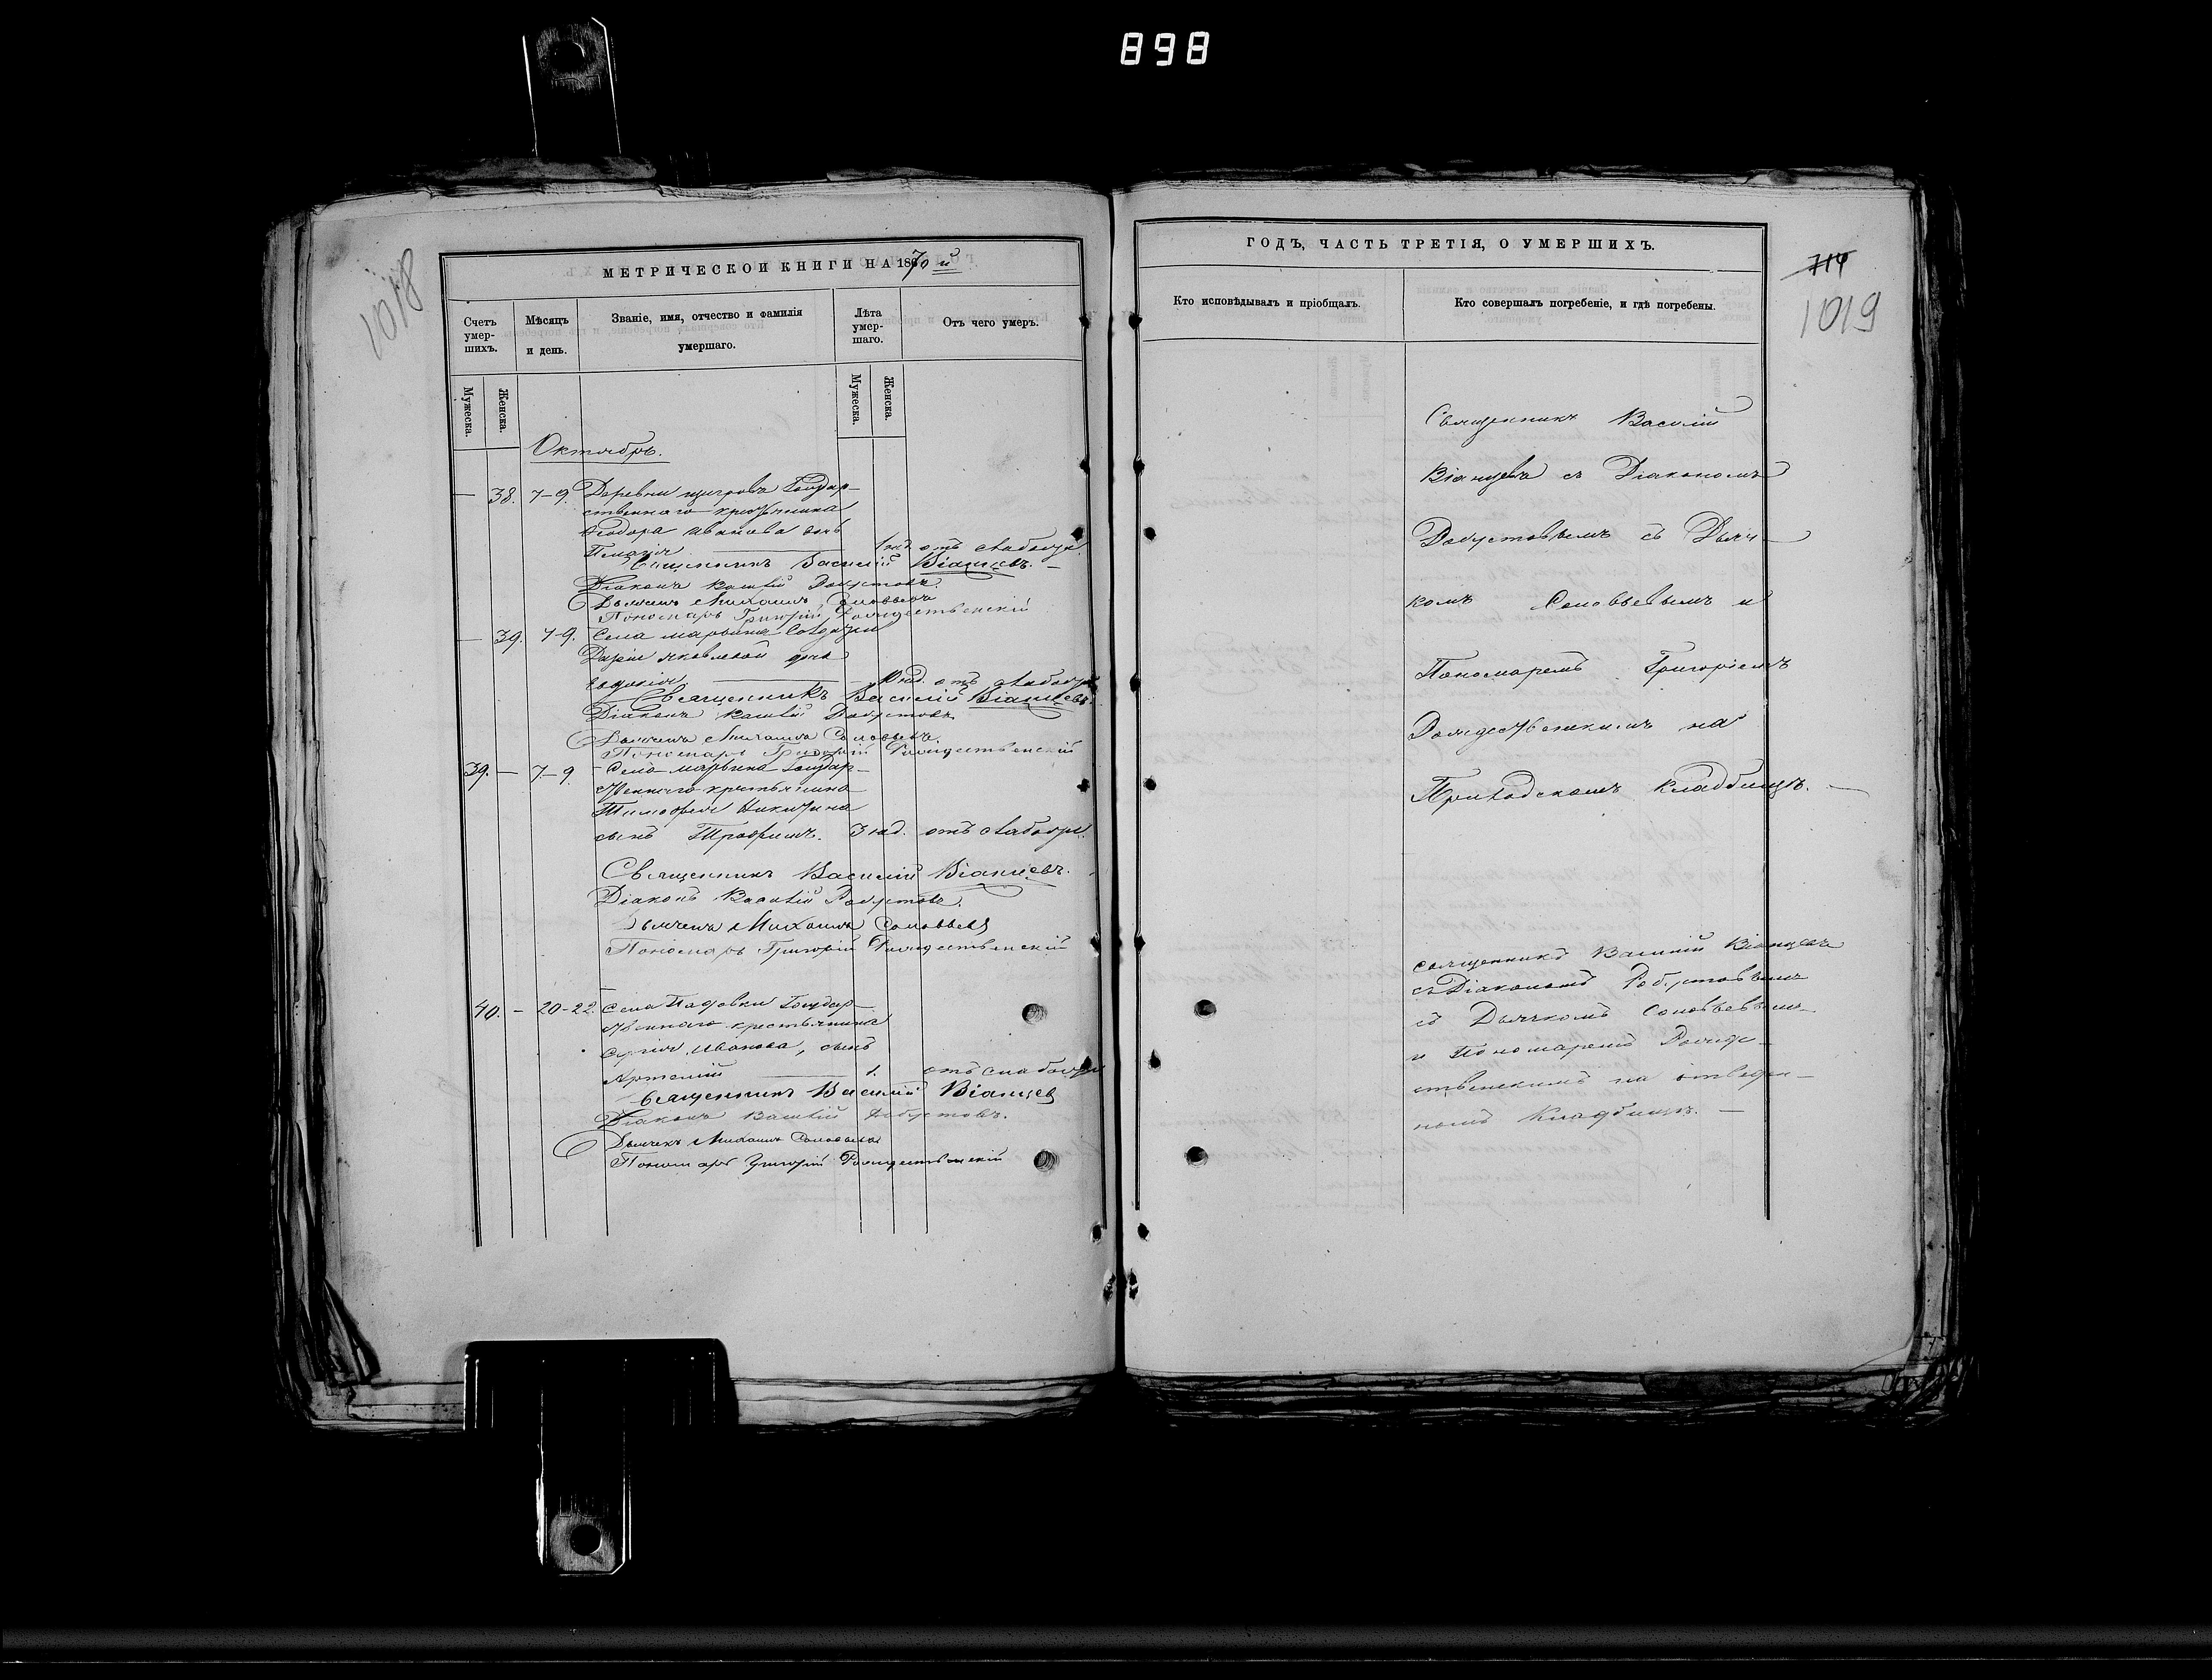 898
1018
МЕТРИЧЕСКОЙ КНИГИ НА 1870 й
Счетъ умер-шихъ.
Мѣсяцъ и день.
Званіе, имя, отчество и фамилія умершаго.
Лѣта умер-шаго.
Отъ чего умеръ.
Мужеска.
Женска.
Мужеска.
Женска.
Октябрь.
— 38. 7-9. Деревни Государ-
ственнаго крестьянина
Ѳеодора Иванова дочь
Пелагія 1 год. отъ слабости.
Священникъ Василій Віанцевъ.
Діаконъ Василій Робустовъ.
Дьячекъ Михаилъ Соловьевъ
Пономарь Григорій Рождественскій
— 39. 7-9. Села Марьина
Даріи Яковлевой дочь
Евдокія отъ слабости
Священникъ Василій Віанцевъ.
Діаконъ Василій Робустовъ
Дьячекъ Михаилъ Соловьевъ.
Пономарь Григорій Рождественскій
39. — 7-9 Села Марьина Государ-
ственнаго крестьянина
Тимофея Никитина
сынъ Трофимъ. 3 год. отъ слабости.
Священникъ Василій Віанцевъ.
Діаконъ Василій Робустовъ.
Дьячекъ Михаилъ Соловьевъ
Пономарь Григорій Рождественскій
40. — 20-22. Села Падовки Государ-
ственнаго крестьянина
Сергія Иванова, сынъ
Артемій 1. отъ слабости
Священникъ Василій Віанцев
Діаконъ Василій Робустовъ.
Дьячекъ Михаилъ Соловьевъ
Пономарь Григорій Рождественскій
ГОДЪ, ЧАСТЬ ТРЕТІЯ, О УМЕРШИХЪ.
714
1019
Кто исповѣдывалъ и пріобщалъ.
Кто совершалъ погребеніе, и гдѣ погребены.
Священникъ Василій
Віанцевъ съ Діакономъ
Робустовымъ съ Дьяч-
комъ Соловьевымъ и
Пономаремъ Григоріемъ
Рождественскимъ на
Приходскомъ кладбищѣ.
Священникъ Василій Віанцевъ
съ Діакономъ Робустовымъ
съ Дьячкомъ Соловьевымъ
и Пономаремъ Рожде-
ственскимъ на отведен-
номъ Кладбищѣ.